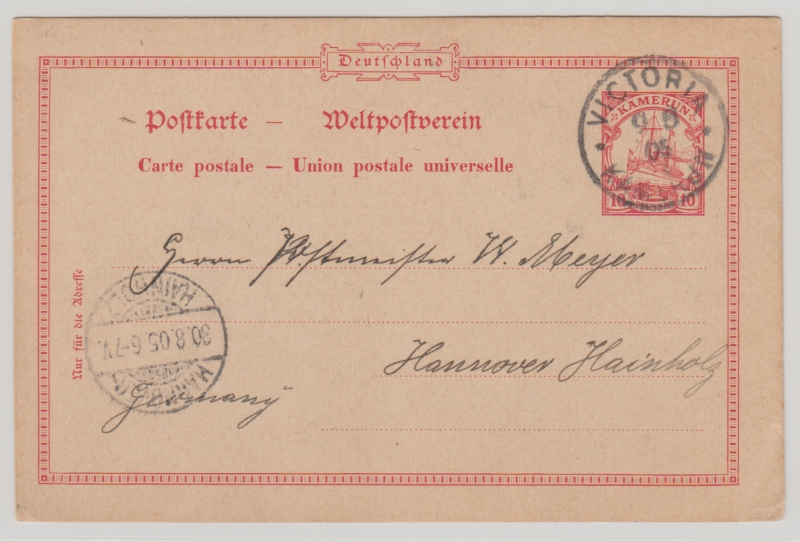 Deutschland
Postkarte — Weltpostverein
Carte postale — Union postale universelle
VICTORIA
05
KAMERUN
10 10
Herrn Postmeister W. Meyer
Hannover Hainholz
Germany
Nur für die Adresse
30.8.05.6-7V.